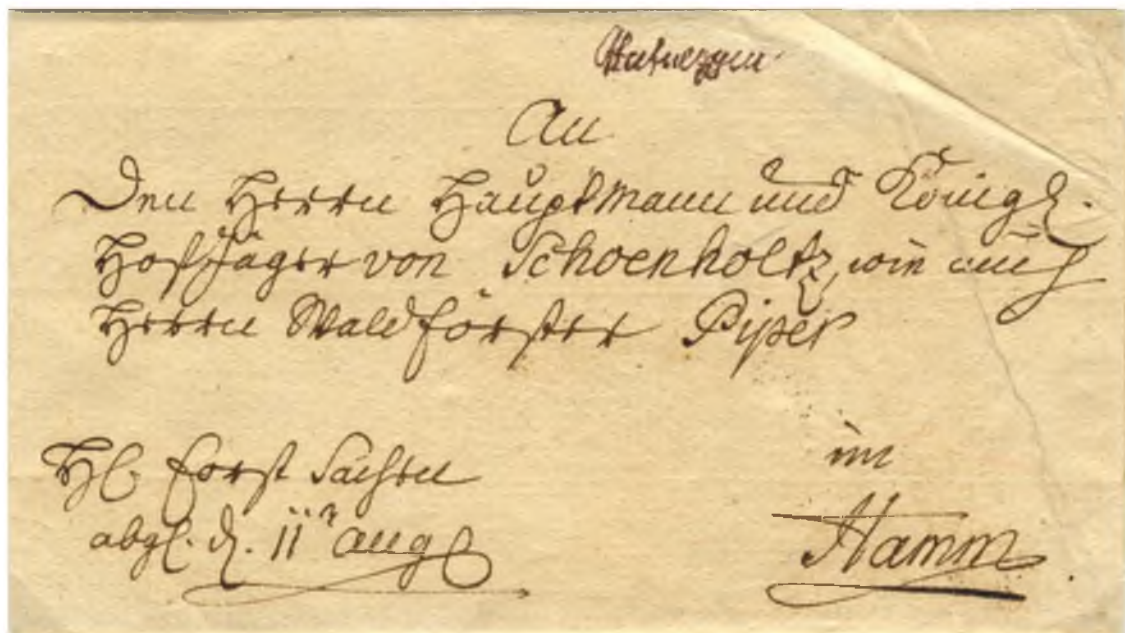 An
Den Herrn Hauptmann und Königl.
Hof Jäger von Schoenholtz, wie auch
Herrn Waldförster Piper
Forst Sachen
abgl. d. 11ª Aug
in
Hamm